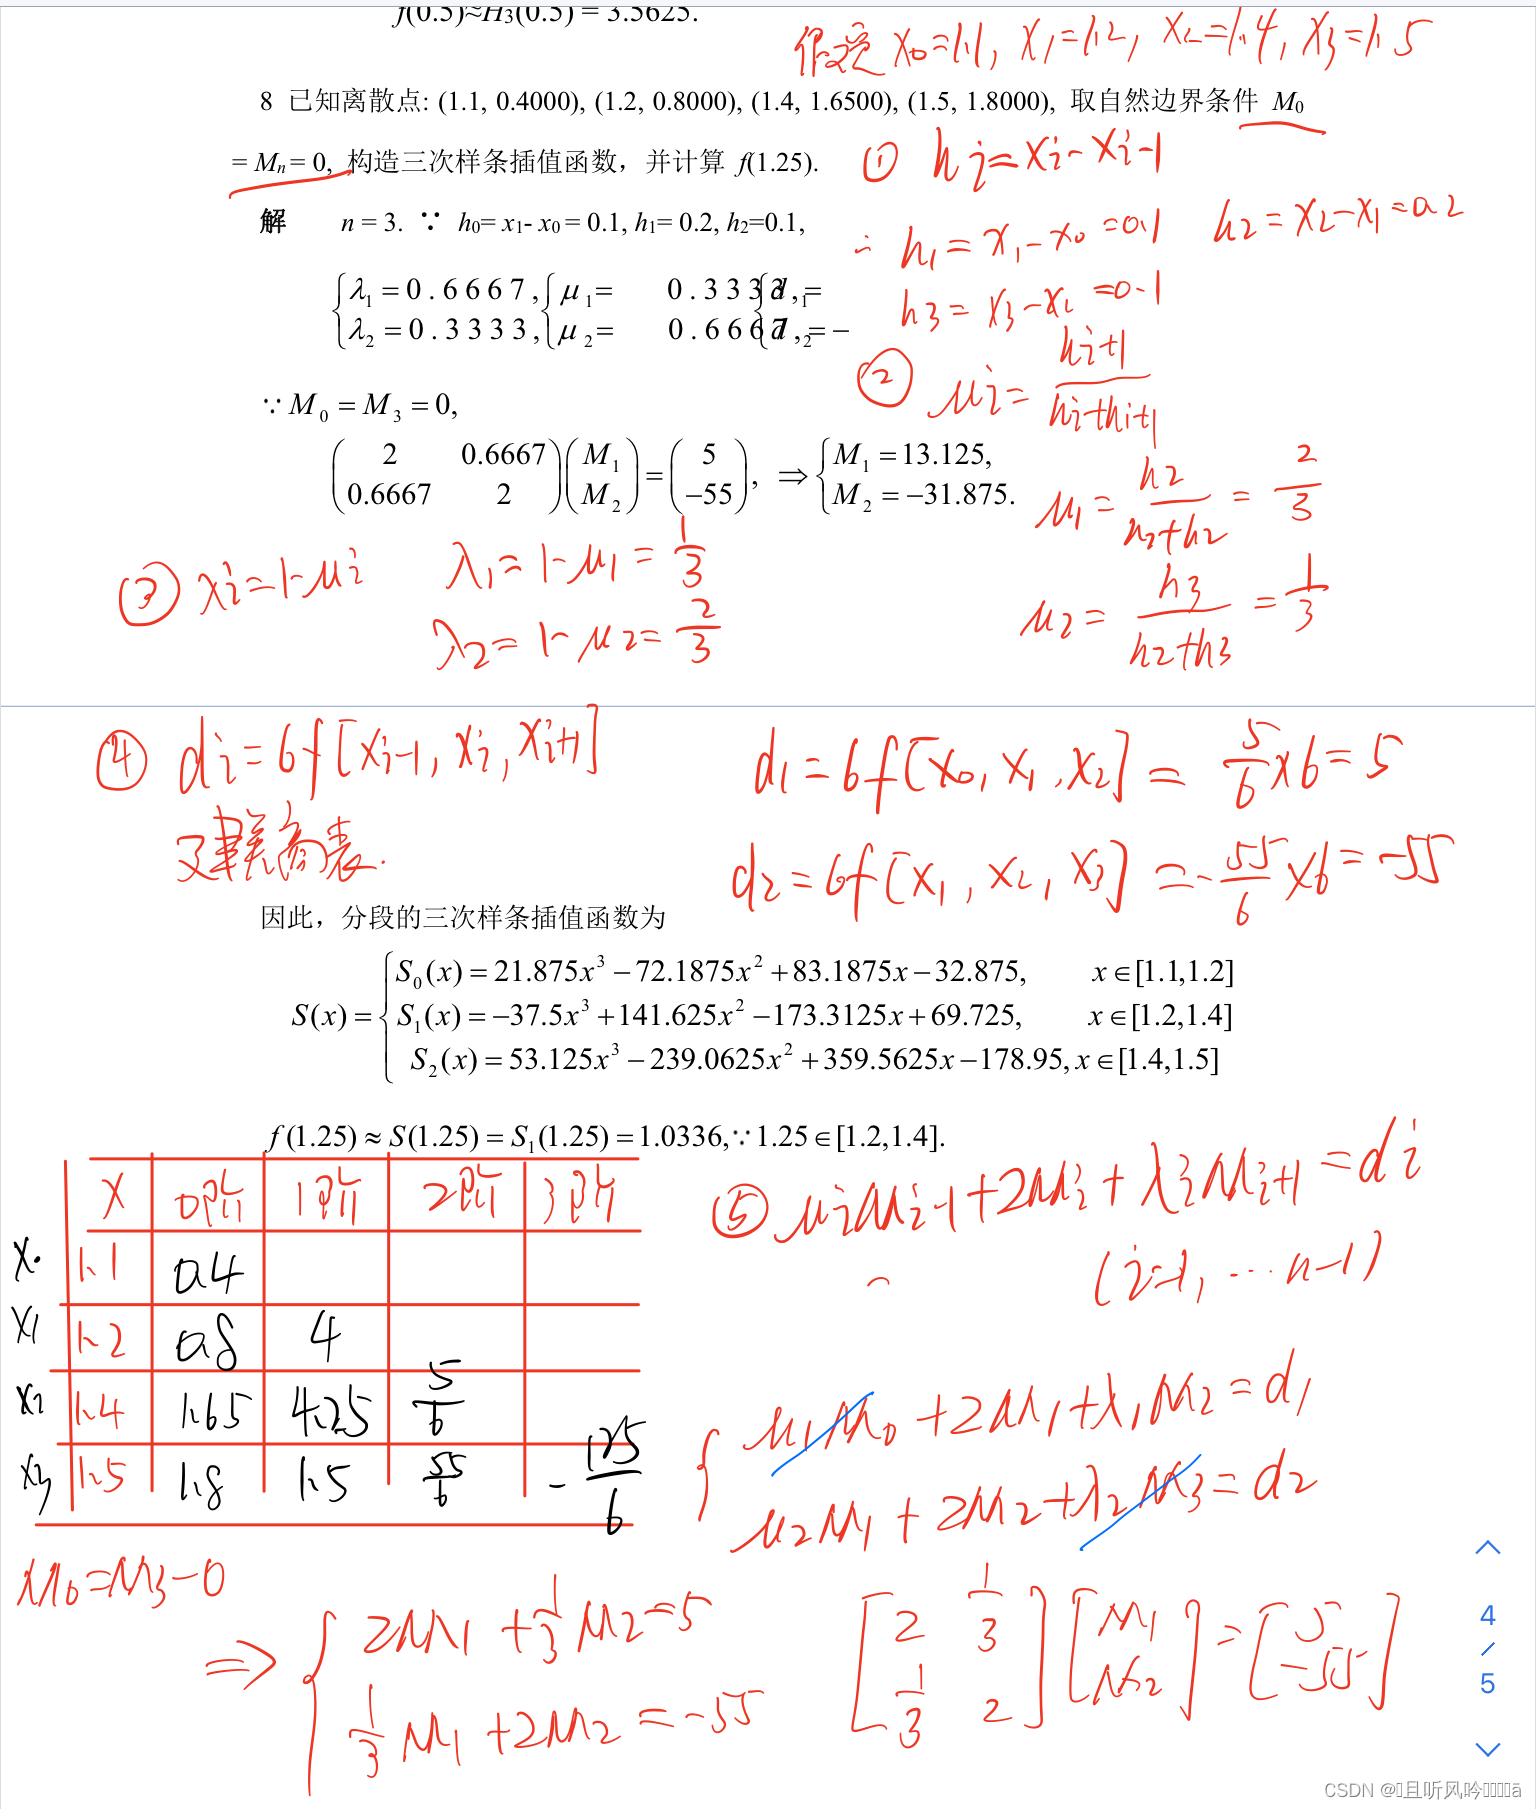 f(0.5)≈H₃(0.5) = 3.5625.
假设 x₀=1.1, x₁=1.2, x₂=1.4, x₃=1.5
8 已知离散点: (1.1, 0.4000), (1.2, 0.8000), (1.4, 1.6500), (1.5, 1.8000), 取自然边界条件 M₀
= Mₙ = 0, 构造三次样条插值函数，并计算 f(1.25).
① hi=xi-xi-1
解 n = 3. ∵ h₀= x₁- x₀ = 0.1, h₁= 0.2, h₂=0.1,
∴ h₁=x₁-x₀=0.1 h₂=x₂-x₁=0.2
h₃=x₃-x₂=0.1
λ₁=0.6667, μ₁= 0.3333, d₁=
λ₂=0.3333, μ₂= 0.6667, d₂=−
② μi=hi+1/(hi+hi+1)
∵M₀=M₃=0,
(2 0.6667) (M₁) = (5), ⇒ M₁=13.125,
(0.6667 2) (M₂) (−55) M₂=−31.875.
μ₁=h₂/(h₂+h₂)=2/3
μ₂=h₃/(h₂+h₃)=1/3
③ λi=1-μi λ₁=1-μ₁=1/3
λ₂=1-μ₂=2/3
④ di=6f[xi-1, xi, xi+1] d₁=6f[x₀, x₁, x₂]=5/6×6=5
建差商表. d₂=6f[x₁, x₂, x₃]=-55/6×6=-55
因此，分段的三次样条插值函数为
S₀(x)=21.875x³−72.1875x²+83.1875x−32.875, x∈[1.1,1.2]
S(x)= S₁(x)=−37.5x³+141.625x²−173.3125x+69.725, x∈[1.2,1.4]
S₂(x)=53.125x³−239.0625x²+359.5625x−178.95, x∈[1.4,1.5]
f(1.25)≈S(1.25)=S₁(1.25)=1.0336,∵1.25∈[1.2,1.4].
X 0阶 1阶 2阶 3阶
x₀ 1.1 0.4
x₁ 1.2 0.8 4
x₂ 1.4 1.65 4.25 5/6
x₃ 1.5 1.8 1.5 55/6 -125/6
⑤ μiMi-1+2Mi+λiMi+1=di
(i=1, ···n-1)
μ₁M₀+2M₁+λ₁M₂=d₁
μ₂M₁+2M₂+λ₂M₃=d₂
M₀=M₃-0
⇒ 2M₁+1/3M₂=5
1/3M₁+2M₂=-55
[2 1/3] [M₁] = [5]
[1/3 2] [M₂] [-55]
4
/
5
CSDN @且听风吟